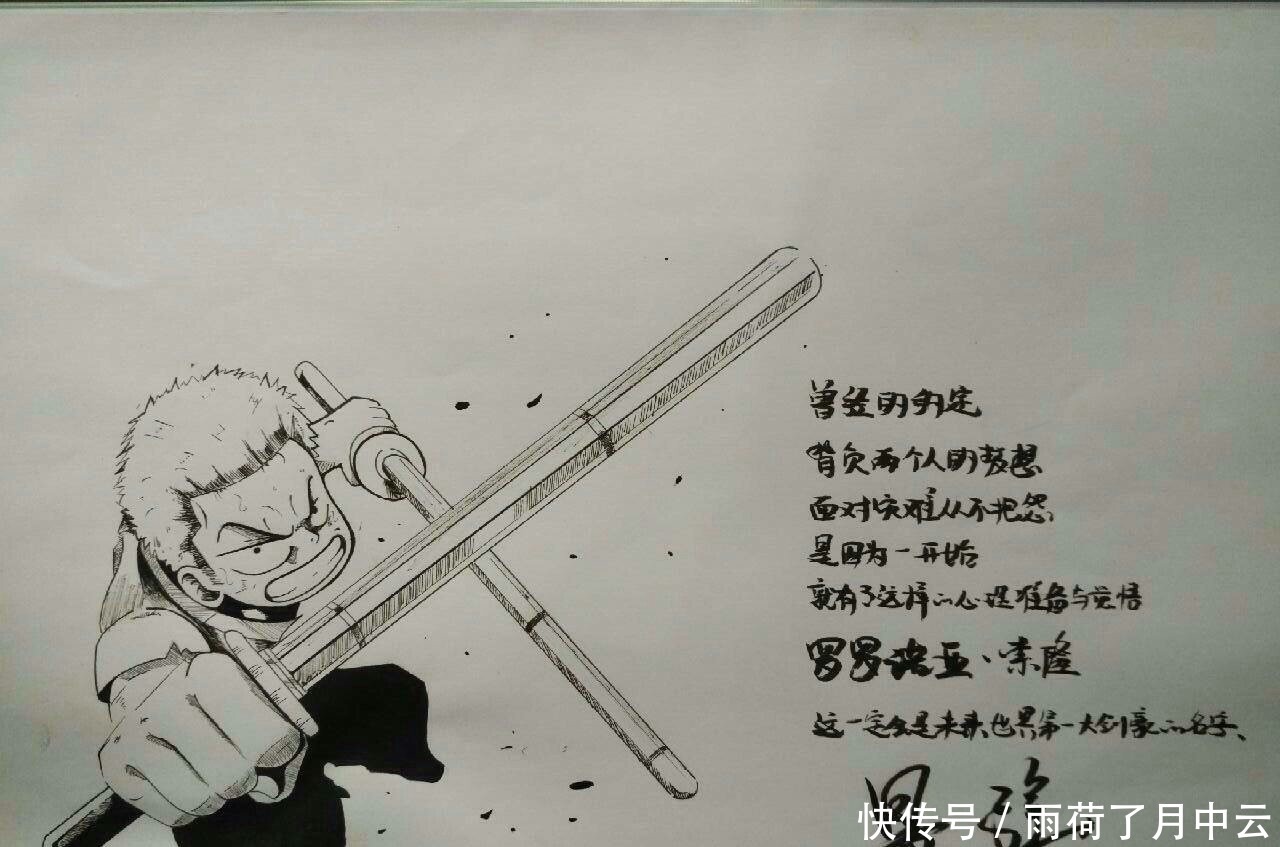 曾经的约定
背负两个人的梦想
面对灾难从不抱怨,
是因为一开始
就有了这样的心理准备与觉悟
罗罗诺亚·索隆
这一定会是未来世界第一大剑豪的名字、
快传号/雨荷了月中云